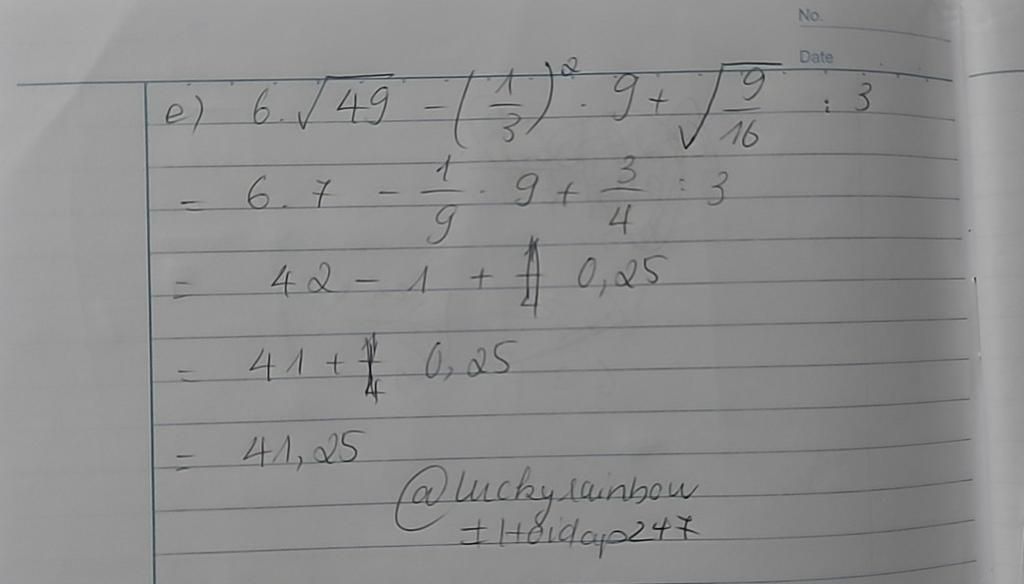 No.
Date
e) 6.√49 - (1/3)² . 9 + √9/16 : 3
= 6.7 - 1/9 . 9 + 3/4 : 3
= 42 - 1 + 0,25
= 41 + 0,25
= 41,25
@luckyrainbow
#Hoidap247